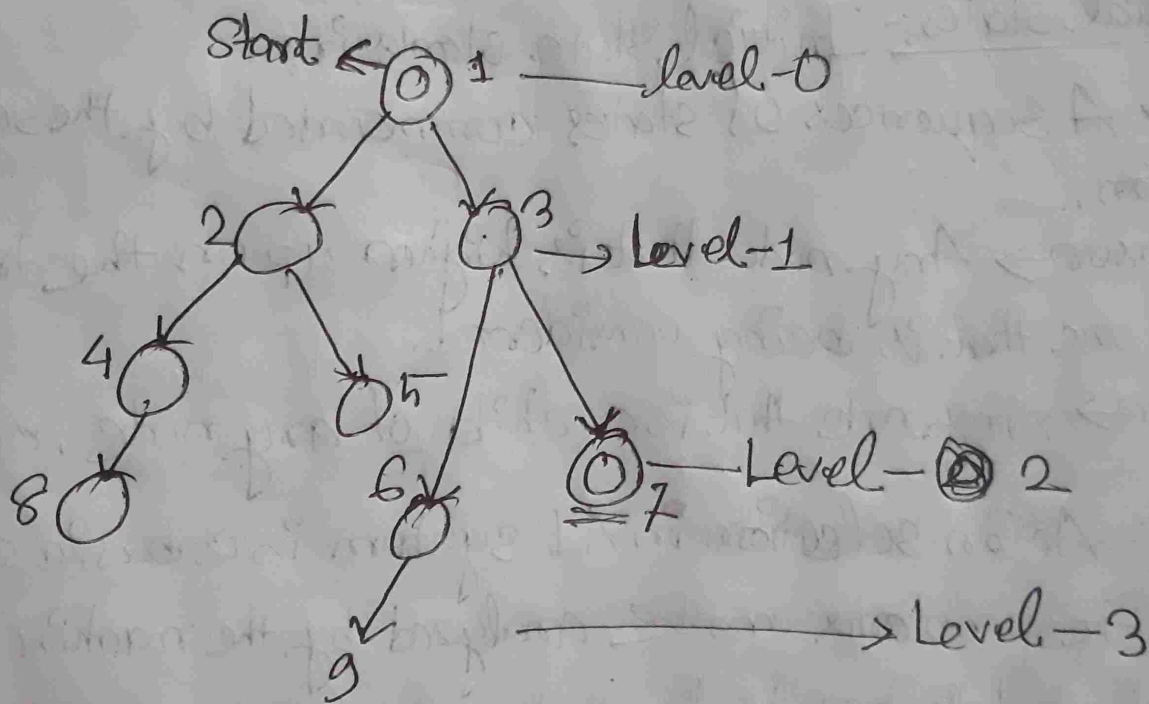 Start 1 level-0
2 3 Level-1
4 5
6 7 Level- 2
8
9 Level-3